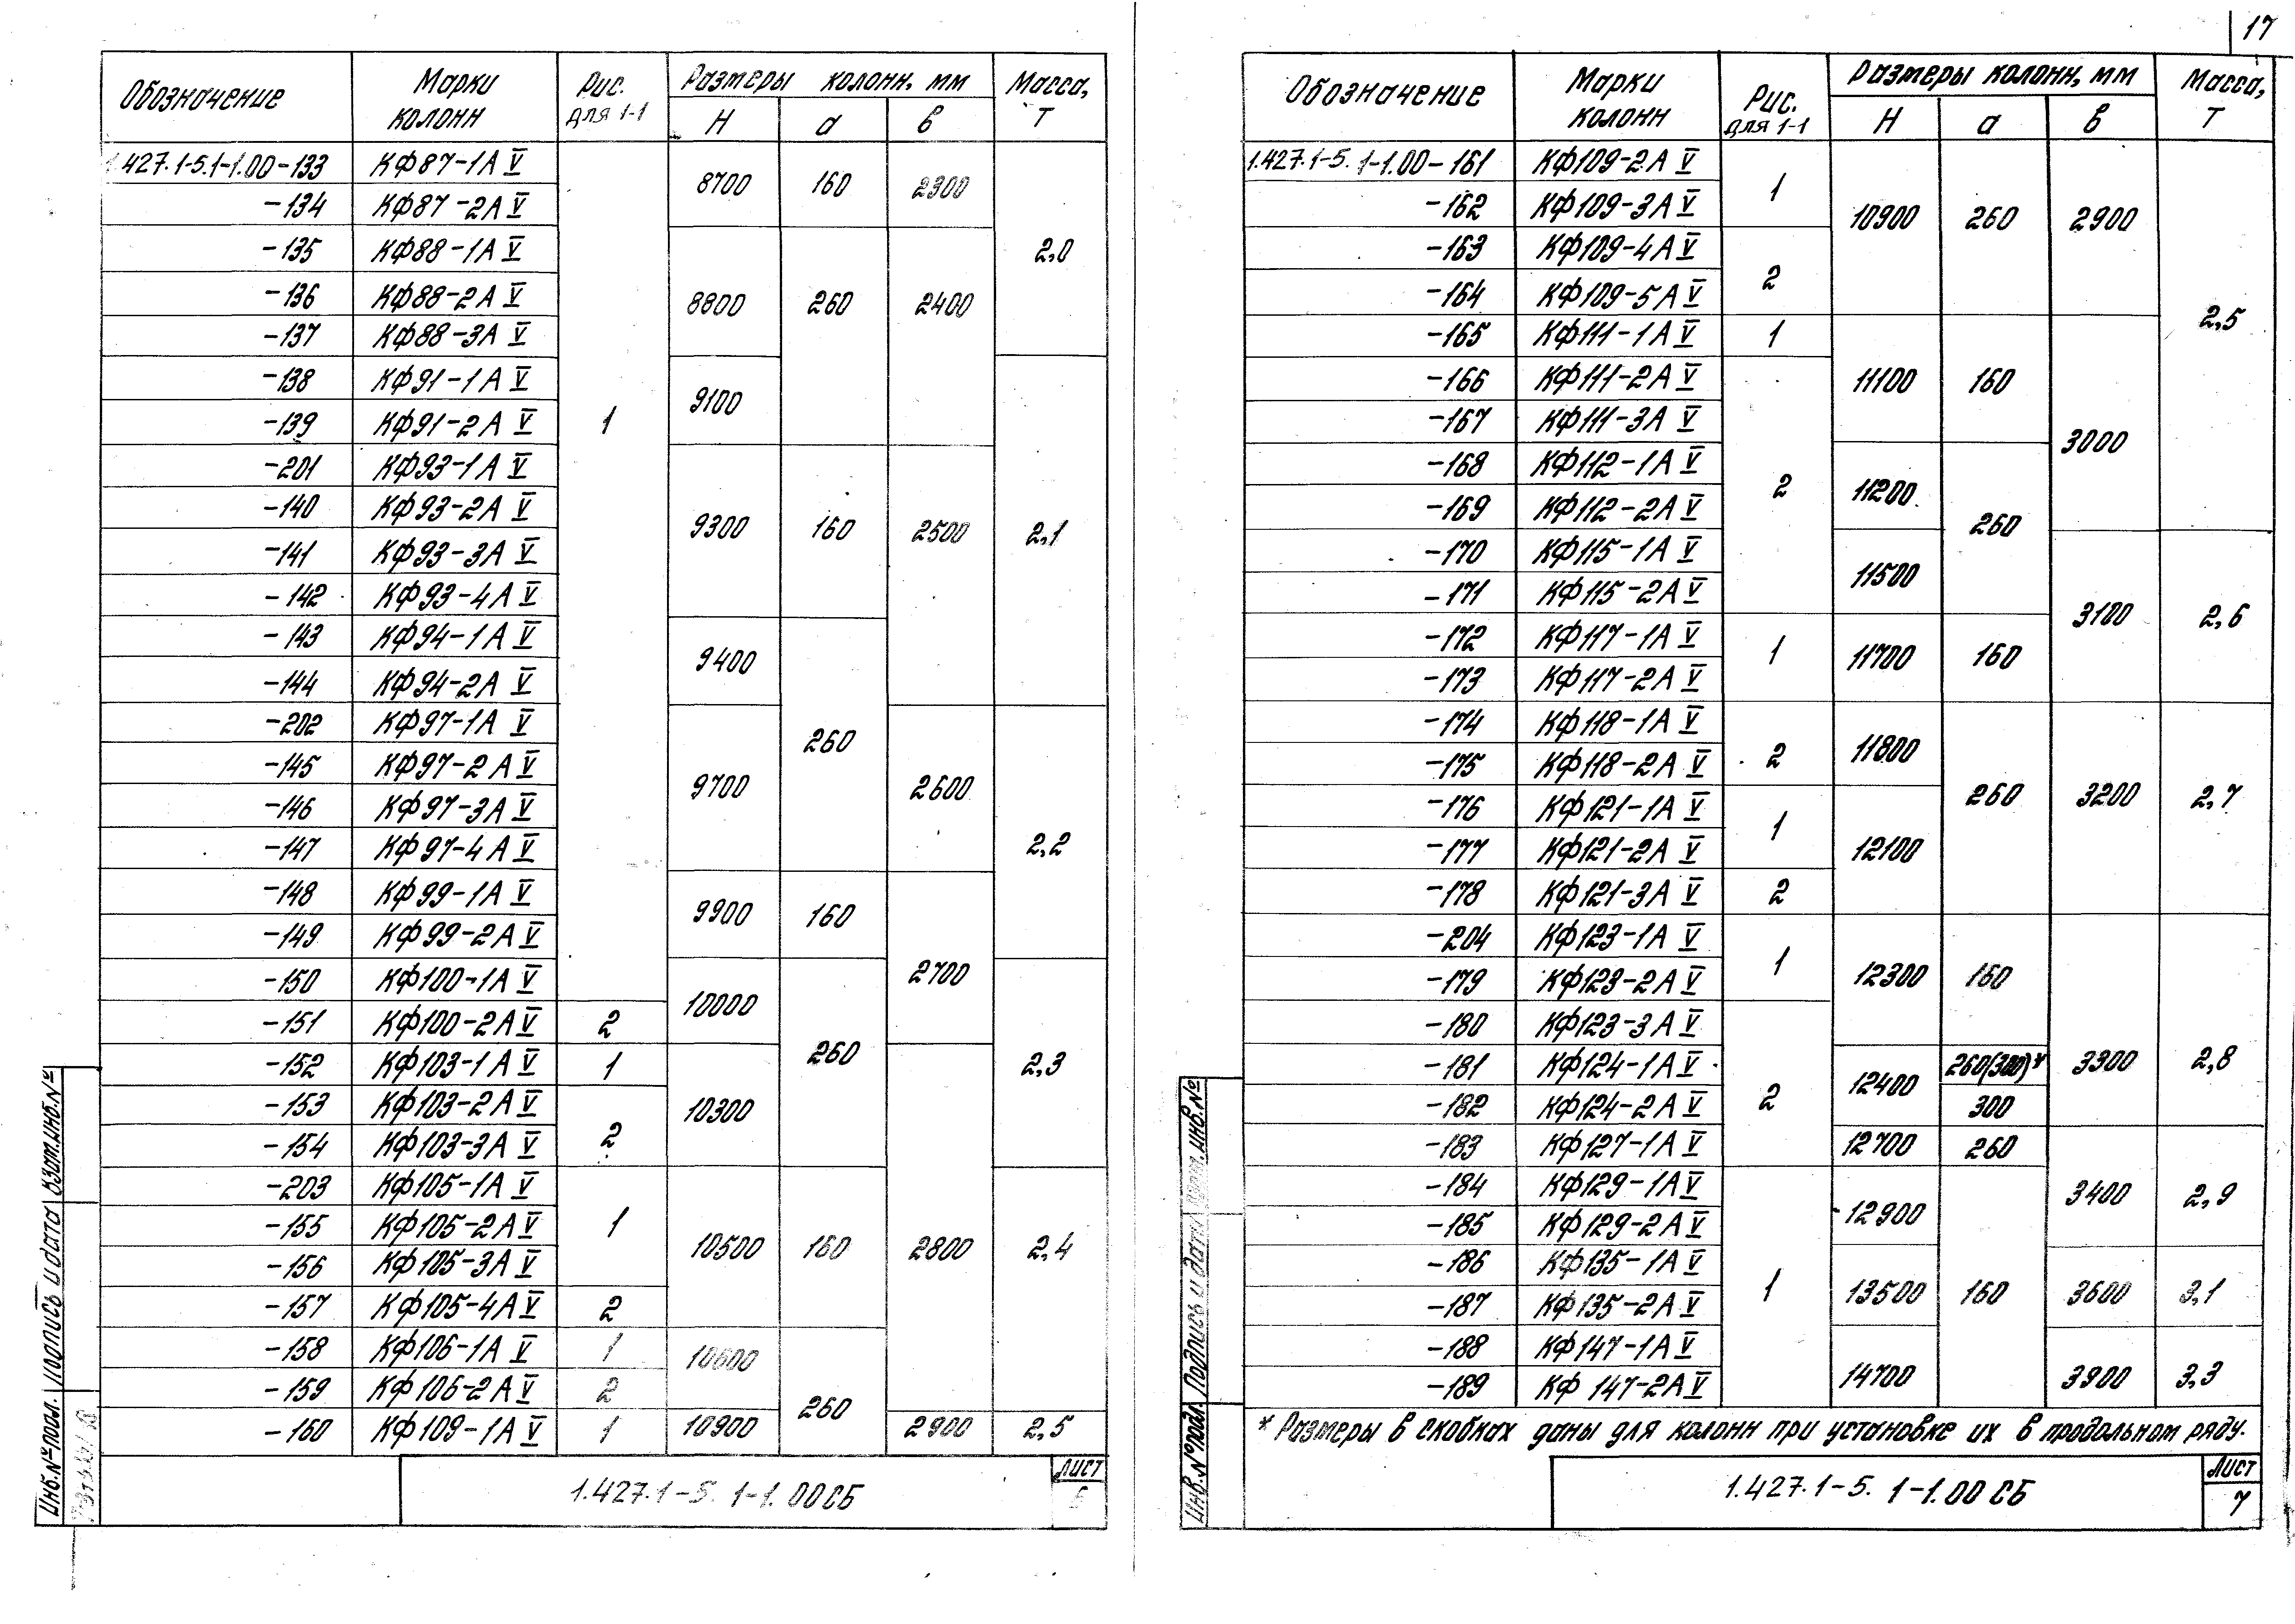 17
Обозначение Марки колонн Рис. для 1-1 Размеры колонн, мм Масса, Т
Н а в
1.427.1-5.1-1.00-133 КФ87-1А V 1 8700 160 2300 2,0
-134 КФ87-2А V
-135 КФ88-1А V 8800 260 2400
-136 КФ88-2А V
-137 КФ88-3А V
-138 КФ91-1А V 9100 2,1
-139 КФ91-2А V
-201 КФ93-1А V 9300 160 2500
-140 КФ93-2А V
-141 КФ93-3А V
-142 КФ93-4А V
-143 КФ94-1А V 9400 260
-144 КФ94-2А V
-202 КФ97-1А V 9700 2600 2,2
-145 КФ97-2А V
-146 КФ97-3А V
-147 КФ97-4А V
-148 КФ99-1А V 9900 160 2700
-149 КФ99-2А V
-150 КФ100-1А V 10000 260 2,3
-151 КФ100-2А V 2
-152 КФ103-1А V 1 10300 2800
-153 КФ103-2А V 2
-154 КФ103-3А V
-203 КФ105-1А V 1 10500 160 2,4
-155 КФ105-2А V
-156 КФ105-3А V
-157 КФ105-4А V 2
-158 КФ106-1А V 1 10600 260
-159 КФ106-2А V 2
-160 КФ109-1А V 1 10900 2900 2,5
1.427.1-5. 1-1.00СБ
Лист
Инв.№ подл. Подпись и дата Взам.инв.№
Обозначение Марки колонн Рис. для 1-1 Размеры колонн, мм Масса, Т
Н а в
1.427.1-5. 1-1.00-161 КФ109-2А V 1 10900 260 2900 2,5
-162 КФ109-3А V
-163 КФ109-4А V 2
-164 КФ109-5А V
-165 КФ111-1А V 1 11100 160 3000
-166 КФ111-2А V 2
-167 КФ111-3А V
-168 КФ112-1А V 11200 260
-169 КФ112-2А V
-170 КФ115-1А V 11500 3100 2,6
-171 КФ115-2А V
-172 КФ117-1А V 1 11700 160
-173 КФ117-2А V
-174 КФ118-1А V 2 11800 260 3200 2,7
-175 КФ118-2А V
-176 КФ121-1А V 1 12100
-177 КФ121-2А V
-178 КФ121-3А V 2
-204 КФ123-1А V 1 12300 160 3300 2,8
-179 КФ123-2А V
-180 КФ123-3А V 2
-181 КФ124-1А V 12400 260(300)*
-182 КФ124-2А V 300
-183 КФ127-1А V 12700 260 3400 2,9
-184 КФ129-1А V 1 12900 160
-185 КФ129-2А V
-186 КФ135-1А V 13500 3600 3,1
-187 КФ135-2А V
-188 КФ147-1А V 14700 3900 3,3
-189 КФ 147-2А V
* Размеры в скобках даны для колонн при установке их в продольном ряду.
1.427.1-5. 1-1.00 СБ
Лист
7
Инв.№ подл. Подпись и дата Взам.инв.№